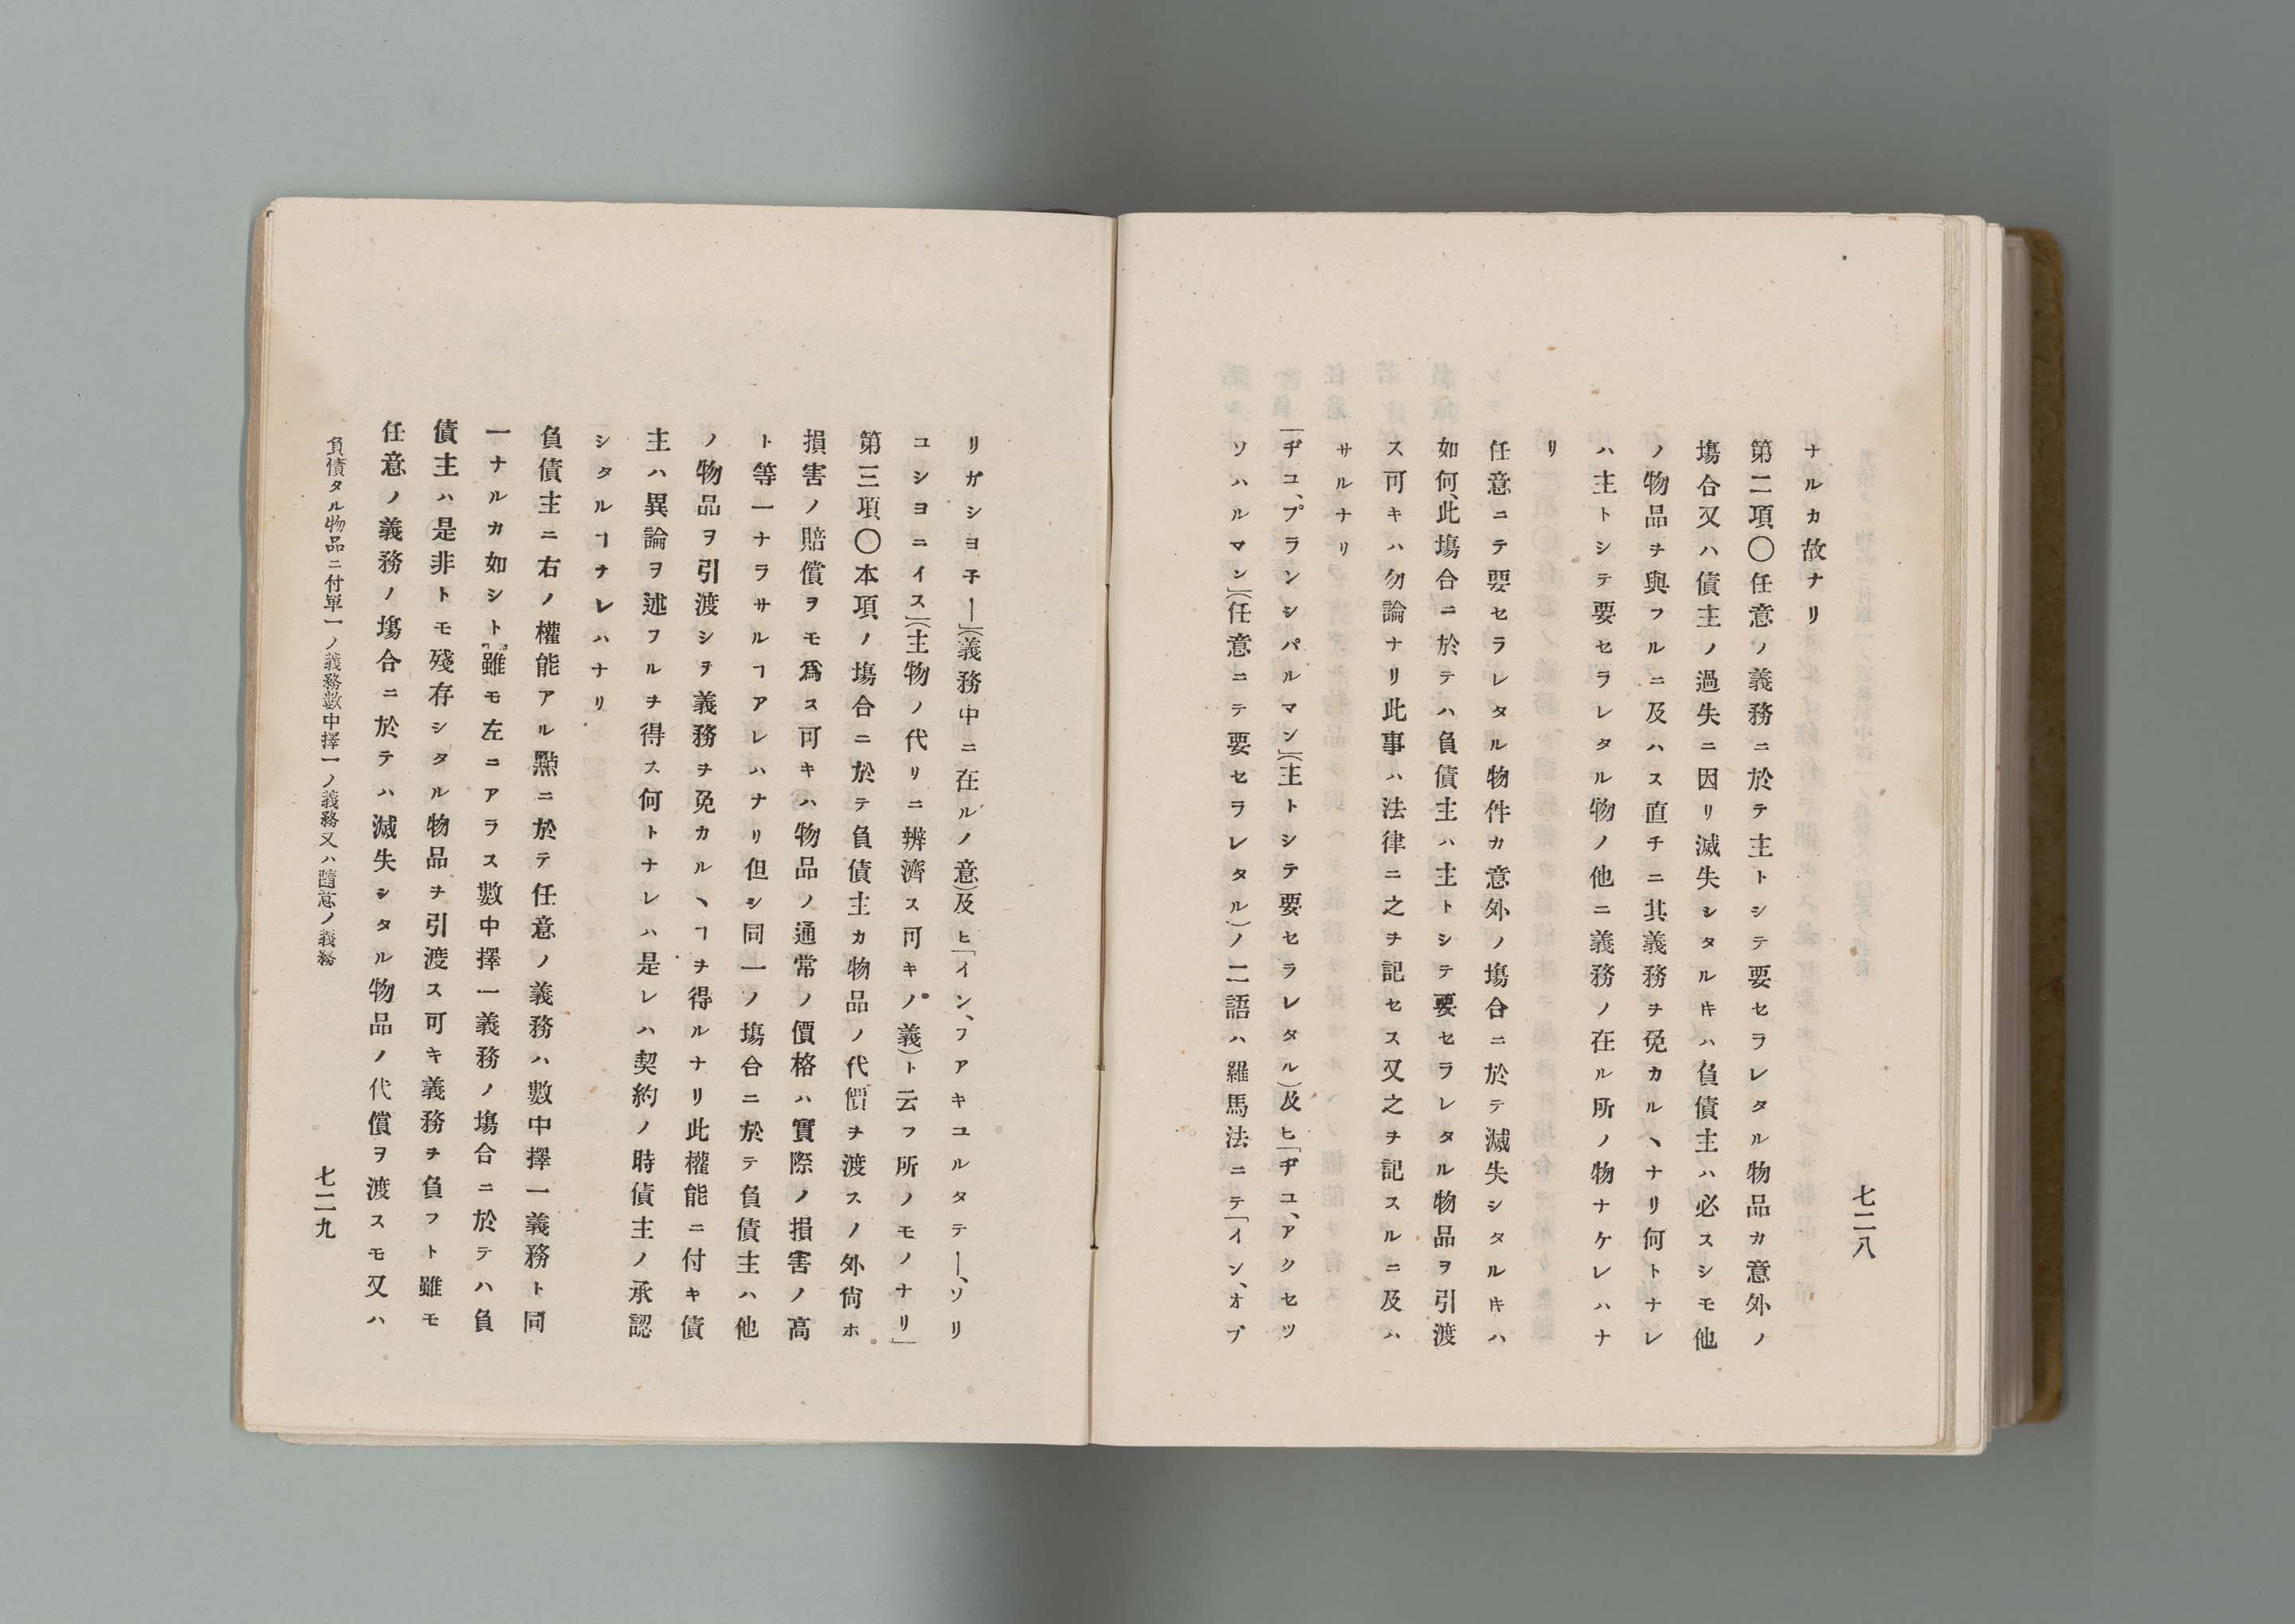 七二八
ナルカ故ナリ
第二項〇任意ノ義務ニ於テ主トシテ要セラレタル物品カ意外ノ
塲合又ハ債主ノ過失ニ因リ滅失シタルキハ負債主ハ必スシモ他
ノ物品ヲ與フルニ及ハス直チニ其義務ヲ免カルヽナリ何トナレ
ハ主トシテ要セラレタル物ノ他ニ義務ノ在ル所ノ物ナケレハナ
リ
任意ニテ要セラレタル物件カ意外ノ塲合ニ於テ滅失シタルキハ
如何、此塲合ニ於テハ負債主ハ主トシテ要セラレタル物品ヲ引渡
ス可キハ勿論ナリ此事ハ法律ニ之ヲ記セス又之ヲ記スルニ及ハ
サルナリ
「ヂユ、プランシパルマン」(主トシテ要セラレタル)及ヒ「ヂユ、アクセツ
ソハルマン」(任意ニテ要セラレタル)ノ二語ハ羅馬法ニテ「イン、オブ
リガシヨ子ー」(義務中ニ在ルノ意)及ヒ「イン、フアキユルタテー、ソリ
ユシヨニイス」(主物ノ代リニ辨濟ス可キノ義)ト云フ所ノモノナリ」
第三項〇本項ノ塲合ニ於テ負債主カ物品ノ代價ヲ渡スノ外尙ホ
損害ノ賠償ヲモ爲ス可キハ物品ノ通常ノ價格ハ實際ノ損害ノ高
ト等一ナラサルヿアレハナリ但シ同一ノ塲合ニ於テ負債主ハ他
ノ物品ヲ引渡シヲ義務ヲ免カルヽヿヲ得ルナリ此權能ニ付キ債
主ハ異論ヲ述フルヲ得ス何トナレハ是レハ契約ノ時債主ノ承認
シタルヿナレハナリ
負債主ニ右ノ權能アル點ニ於テ任意ノ義務ハ數中擇一義務ト同
一ナルカ如シト雖モ左ニアラス數中擇一義務ノ塲合ニ於テハ負
債主ハ是非トモ殘存シタル物品ヲ引渡ス可キ義務ヲ負フト雖モ
任意ノ義務ノ塲合ニ於テハ滅失シタル物品ノ代償ヲ渡スモ又ハ
負債タル物品ニ付單一ノ義務數中擇一ノ義務又ハ隨意ノ義務
七二九